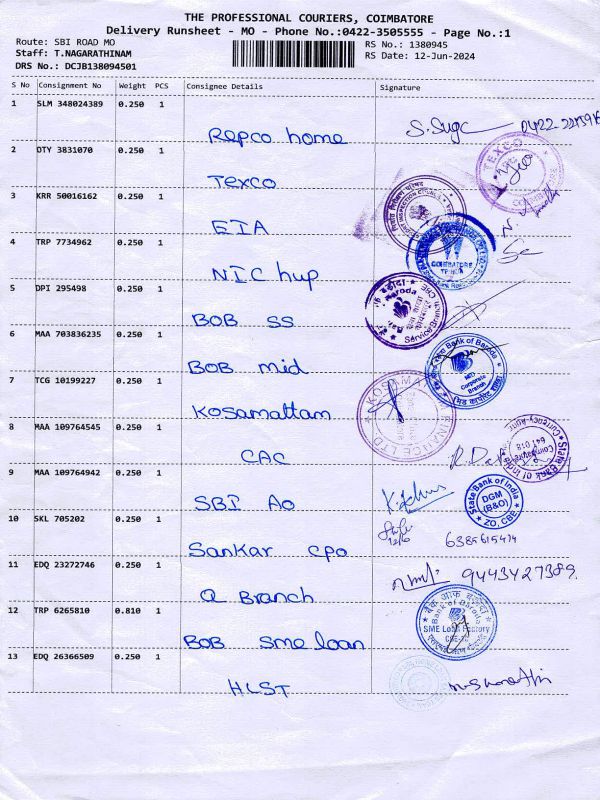 THE PROFESSIONAL COURIERS, COIMBATORE
Delivery Runsheet - MO - Phone No.:0422-3505555 - Page No.:1
Route: SBI ROAD MO
RS No.: 1380945
Staff: T.NAGARATHINAM
RS Date: 12-Jun-2024
DRS No.: DCJB138094501
S No Consignment No Weight PCS Consignee Details Signature
1 SLM 348024389 0.250 1
Repco home
2 DTY 3831070 0.250 1
TEXCO
Texco
3 KRR 50016162 0.250 1
EIA
4 TRP 7734962 0.250 1
COIMBATORE
NIC hup
5 DPI 295498 0.250 1
BOB SS
6 MAA 703836235 0.250 1
Bank of Baroda
MID Corporate Branch
BOB mid
7 TCG 10199227 0.250 1
Kosamattam
8 MAA 109764545 0.250 1
CAC
State Bank of India
Coimbatore
641 018
9 MAA 109764942 0.250 1
SBI AO
State Bank of India
DGM
(B&O)
ZO, CBE
10 SKL 705202 0.250 1
12/6
Sankar CPO
11 EDQ 23272746 0.250 1
9443427389
Q Branch
12 TRP 6265810 0.810 1
Bank of Baroda
SME Loan Factory
BOB sme loan
13 EDQ 26366509 0.250 1
HLST